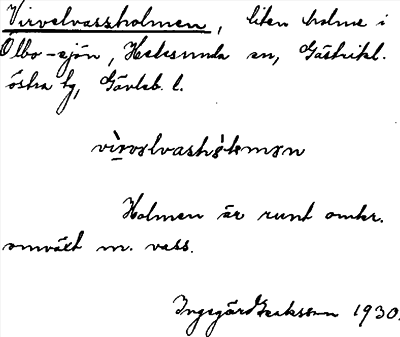 Virvelvassholmen, liten holme i
Ölbo-sjön, Hedesunda sn, Gästrikl.
östra tg, Gävleb. l.
Holmen är runt omkr.
omväxt m. vass.
Ingegärd Isaksson 1930.